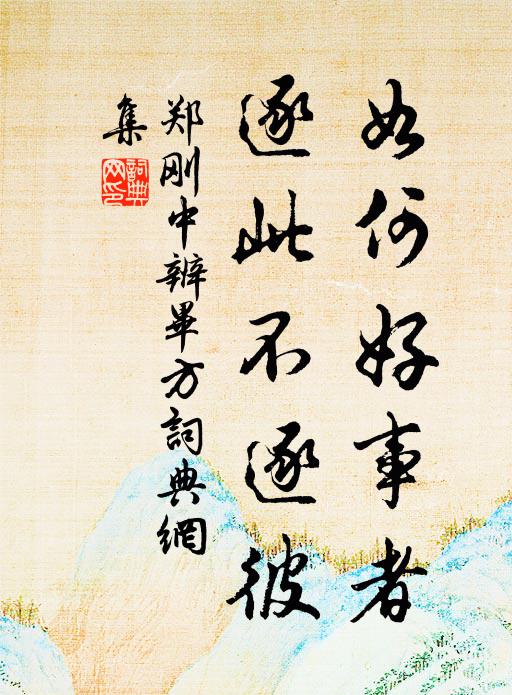 如何好事者
逐此不逐彼
郑刚中辨毕方詞典網
集
詞典网印